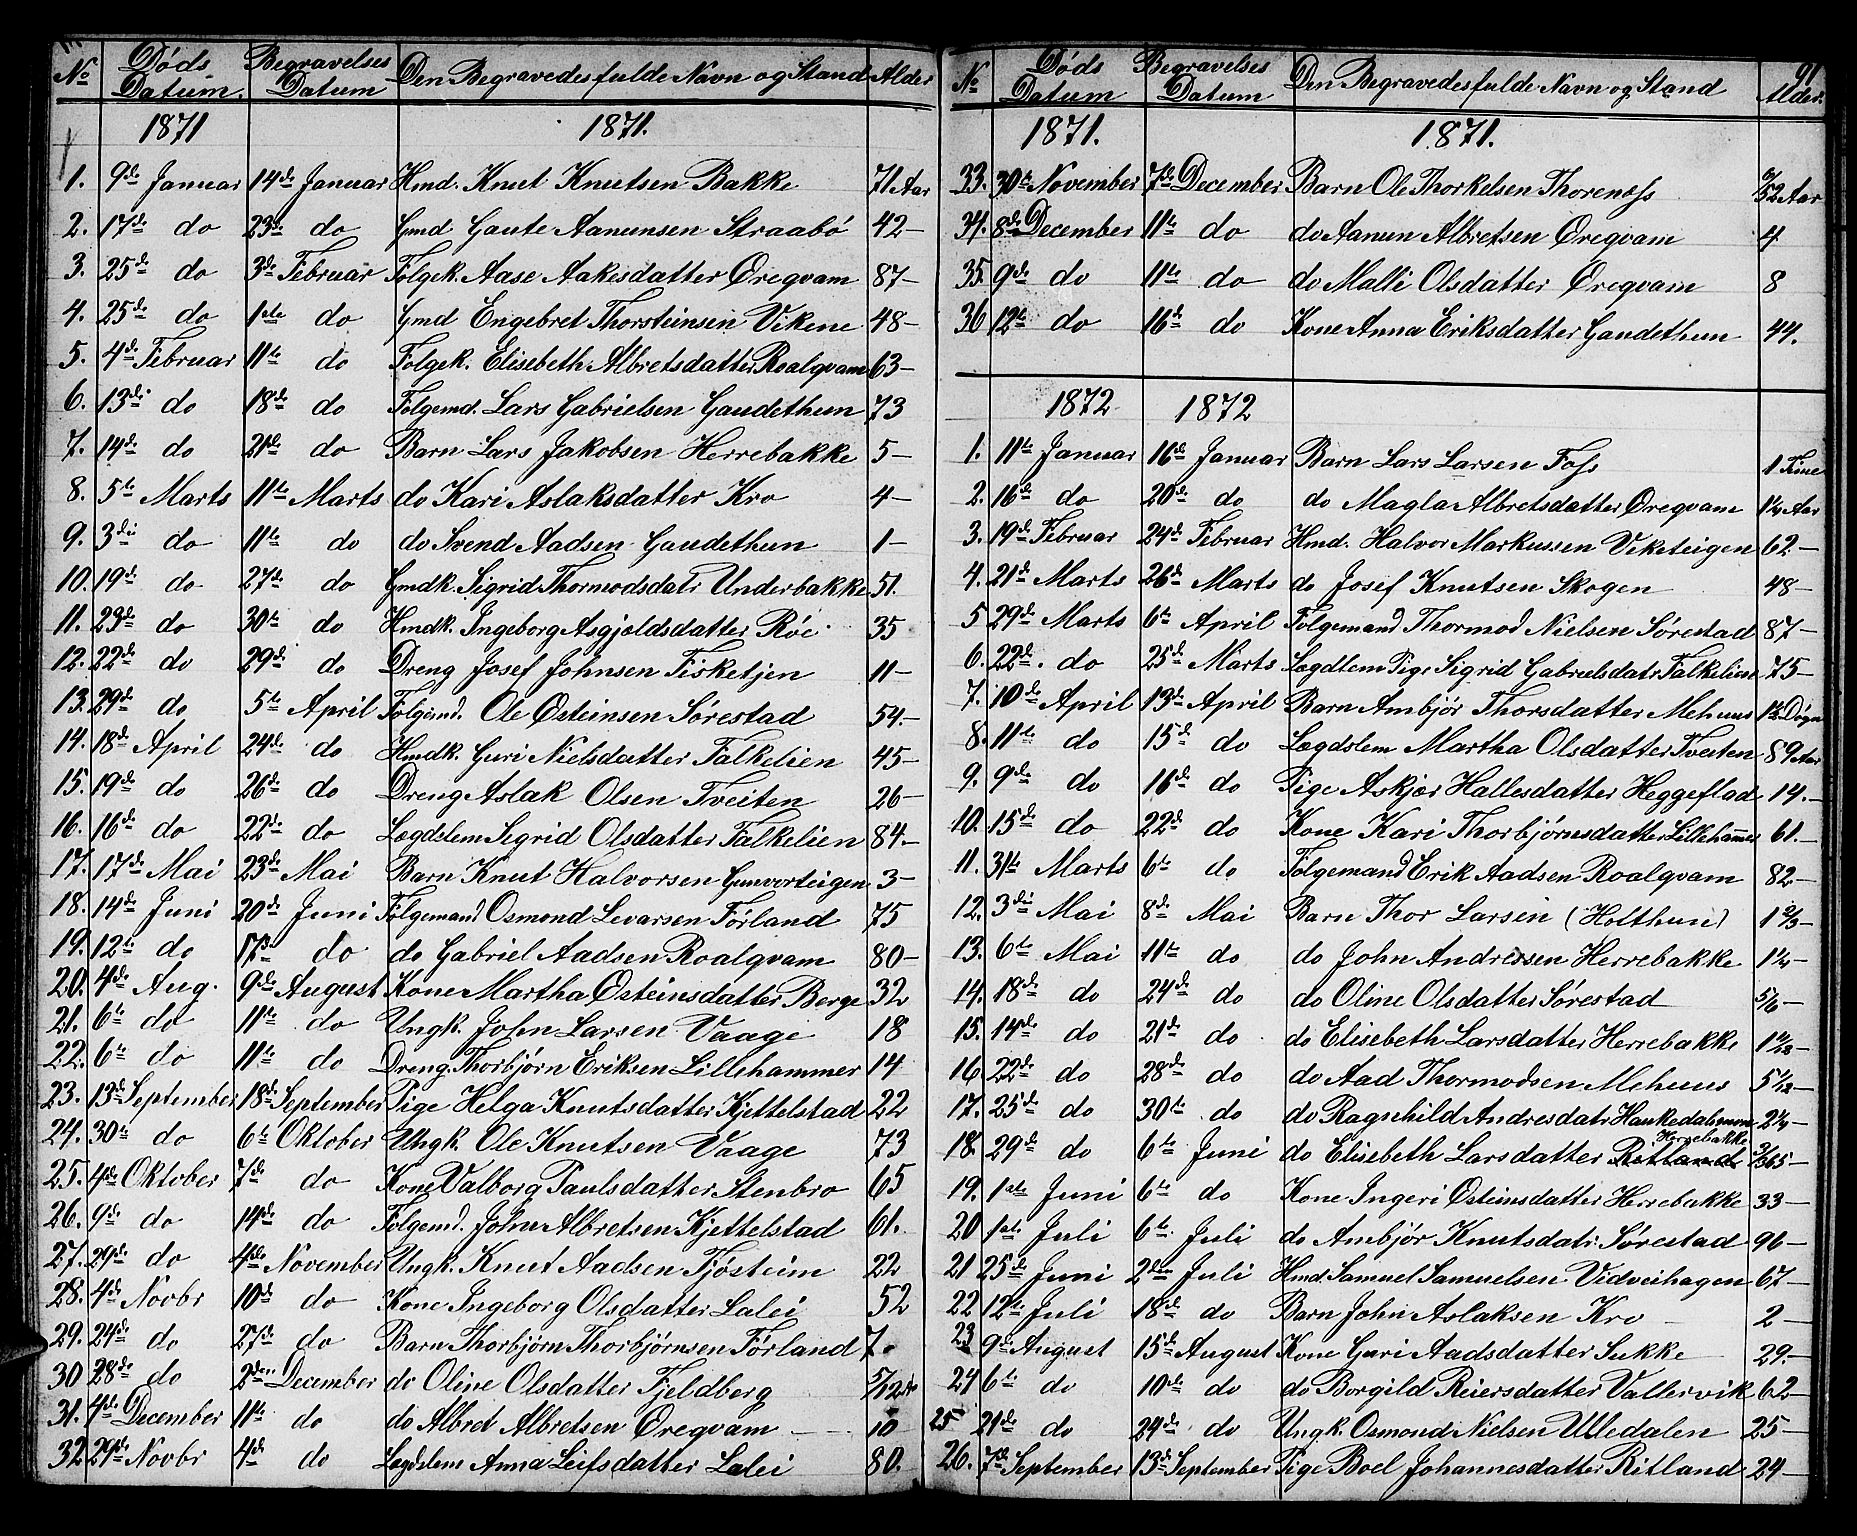 No Døds Datum. Begravelses Datum Den Begravedes fulde Navn og Stand Alder
1871 1871.
1. 9de Januar 14de Januar Hmd. Knut Knutsen Bakke 71 Aar
2. 17de do 23de do Gmd Gaute Aanunsen Straabø 42-
3. 25de do 3de Februar Følgek. Aase Aakesdatter Øregvam 87-
4. 25de do 1ste do Gmd Engebret Thorsteinsen Vikene 48-
5. 4de Februar 11te do Følgek. Elisebeth Albretsdatter Roalqvam 63-
6. 13de do 18de do Følgemd. Lars Gabrielsen Gaudethun 73
7. 14de do 21de do Barn Lars Jakobsen Herrebakke 5-
8. 5te Marts 11te Marts do Kari Aslaksdatter Kro 4-
9. 3die do 11te do do Svend Aadsen Gaudethun 1-
10. 19de do 27de do Gmdk. Sigrid Thormodsdatr Underbakke 51.
11. 23de do 30te do Hmdk. Ingeborg Asgjoldsdatter Røe 35
12. 22de do 29de do Dreng Josef Johnsen Fisketjen 11-
13. 29de do 5te April Følgemd. Ole Østeinsen Sørestad 54.-
14. 18de April 24de do Hmdk. Guri Nielsdatter Falkelien 45-
15. 19de do 26de do Dreng Aslak Olsen Tveiten 26-
16. 16de do 22de do Lægdslem Sigrid Olsdatter Falkelien 84.-
17. 17de Mai 23de Mai Barn Knut Halvorsen Gunvorteigen 3-
18. 14de Juni 20de Juni Følgemand Osmond Levarsen Førland 75
19. 12te do 17de do do Gabriel Aadsen Roalqvam 80-
20. 4de Aug. 9de August Kone Martha Østeinsdatter Berge 32
21. 6te do 11te do Ungk. John Larsen Vaage 18
22. 6te do 11te do Dreng. Thorbjørn Eriksen Lillehammer 14
23. 13de September 18de September Pige Helga Knutsdatter Kjettelstad 22
24. 30te do 6te Oktober Ungk. Ole Knutsen Vaage 73
25. 4de Oktober 7de do Kone Valborg Paulsdatter Stenbro 65
26. 9de do 14de do Følgemd. John Albretsen Kjettelstad 61.
27. 29de do 4de November Ungk. Knut Aadsen Fjøsteim 22
28. 4de Novbr 10de do Kone Ingeborg Olsdatter Lalei 52
29. 24de do 27de do Barn Thorbjørn Thorbjørnsen Førland 7.
30 28de do 2den December do Oline Olsdatter Fjeldberg 5/12
31. 4de December 11te do do Albret Albretsen Øregvam 10
32 29de Novbr 4de do Lægdslem Anna Leifsdatter Lalei 80.
91
No Døds Datum Begravelses Datum Den Begravedes fulde Navn og Stand Alder.
1871. 1871.
33. 30te November 7de December Barn Ole Thorkelsen Thorenæss /52 Aar
34. 8de December 11te do do Aanun Albretsen Øregvam 4
35. 9de do 11te do do Malli Olsdatter Øregvam 8
36 12te do 16de do Kone Anna Eriksdatter Gaudethun 44.
1872 1872
1. 11te Januar 16de Januar Barn Lars Larsen Foss 1 Time
2. 16de do 20de do do Magla Albretsdatter Øregvam 1¼ Aar
3. 19de Februar 24de Februar Hmd. Halvor Markussen Viketeigen 62-
4. 21de Marts 26de Marts do Josef Knutsen Skogen 48-
5 29de Marts 6te April Følgemand Thormod Nielsen Sørestad 87-
6. 22de do 25de Marts Lægdlem Pige Sigrid Gabrielsdatr Falkelien 75-
7. 10de April 13de April Barn Ambjør Thorsdatter Mehuus 1½ Døgn
8. 11te do 15de do Lægdslem Martha Olsdatter Tveiten 89 Aar
9. 9de do 16de do Pige Askjær Hallesdatter Heggeflad 14.-
10. 15de do 22de do Kone Kari Thorbjørnsdatter Lillehammer 61.-
11. 31te Marts 6te do Følgemand Erik Aadsen Roalqvam 82-
12. 3die Mai 8de Mai Barn Thor Larsen (Holthun) 1 2/3-
13. 6te Mai 11te do do John Andressen Herrebakke 1¼-
14. 18de do 24de do do Oline Olsdatter Sørestad 5/6-
15. 14de do 21de do do Elisebeth Larsdatter Herrebakke
16 22de do 28de do do Aad Thormodsen Mehuus 5 1/12-
17. 25de do 30te do do Ragnhild Andresdatr Haukedalsmoen 2¼-
18. 29de do 6te Juni do Elisebeth Larsdatter Ritland Herrebakke /365-
19. 1ste Juni 6te do Kone Ingeri Østeinsdatter Herrebakke 33-
20 1ste Juli 6te Juli do Ambjør Knutsdatr Sørestad 96-
21 25de Juni 2den Juli Hmd. Samuel Samuelsen Vidveihagen 67-
22 12te Juli 18de do Barn John Aslaksen Kro 2-
23 9de August 15de August Kone Guri Aadsdatter Sukke 29.-
24 6te do 10de do do Borgild Reiersdatter Vallervik 62-
25 21de do 24de do Ungk. Osmond Nielsen Ulledalen 25-
26. 7de September 13de September Pige Boel Johannesdatter Ritland 24-